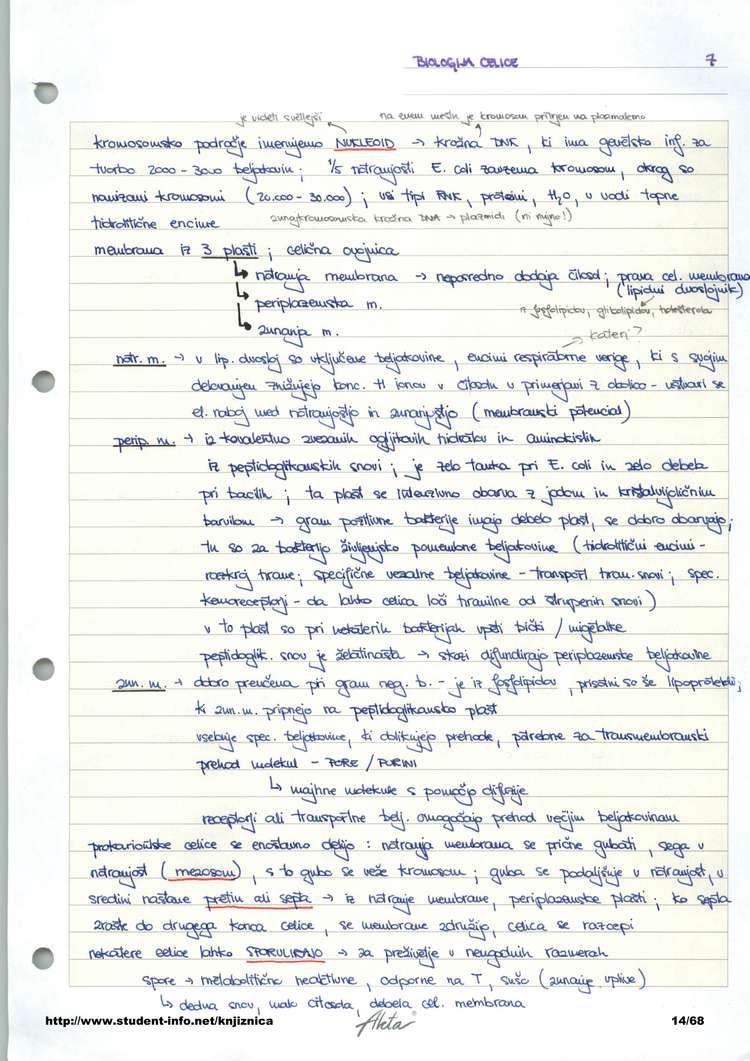 BIOLOGIJA CELICE 7
je videti svetlejši na enem mestu je kromosom pritrjen na plazmalemo
kromosomsko področje imenujemo NUKLEOID → krožna DNK, ki ima genetsko inf. za
tvorbo 2000 - 3000 beljakovin; 1/5 notranjosti E. coli zavzema kromosom, okrog so
nanizani kromosomi (20.000 - 30.000); vsi tipi RNK, proteini, H2O, v vodi topne
hidrolitične encime zunajkromosomska krožna DNA → plazmidi (ni nujno!)
membrana iz 3 plasti; celična ovojnica
notranja membrana → neposredno obdaja citosol; prava cel. membrana
(lipidni dvosloj­nik)
periplazemska m. iz fosfolipidov, glikolipidov, holesterola
zunanja m. kateri?
notr. m. → v lip. dvosloj so vključene beljakovine, encimi respiratorne verige, ki s svojim
delovanjem znižujejo konc. H ionov v citosolu v primerjavi z okolico - ustvari se
el. naboj med notranjostjo in zunanjostjo (membranski potencial)
perip. m. → iz kovalentno zvezanih ogljikovih hidratov in aminokislin
iz peptidoglikanskih snovi; je zelo tanka pri E. coli in zelo debela
pri bacilih; ta plast se intenzivno obarva z jodom in kristalvijoličnim
barvilom → gram pozitivne bakterije imajo debelo plast, se dobro obarvajo;
tu so za bakterijo življenjsko pomembne beljakovine (hidrolitični encimi -
razkroj hrane; specifične vezalne beljakovine - transport hran. snovi; spec.
kemoreceptorji - da lahko celica loči hranilne od strupenih snovi)
v to plast so pri nekaterih bakterijah vpeti bički / migetalke
peptidoglik. snov je želatinasta → skozi difundirajo periplazemske beljakovine
zun. m. → dobro preučena pri gram neg. b. - je iz fosfolipidov, prisotni so še lipoproteini,
ki zun. m. pripnejo na peptidoglikansko plast
vsebuje spec. beljakovine, ki oblikujejo prehode, potrebne za transmembranski
prehod molekul - PORE / PURINI
↳ majhne molekule s pomočjo difuzije
receptorji ali transportne belj. omogočajo prehod večjim beljakovinam
prokariontske celice se enostavno delijo: notranja membrana se prične gubati, sega v
notranjost (mezosom), s to gubo se veže kromosom; guba se podaljšuje v notranjost, v
sredini nastane pretin ali septa → iz notranje membrane, periplazemske plasti; ko septa
zraste do drugega konca celice, se membrane združijo, celica se razcepi
nekatere celice lahko SPORULIRAJO → za preživetje v neugodnih razmerah
spore → metabolitično neaktivne, odporne na T, sušo (zunanje vplive)
↳ dedna snov, malo citosola, debela cel. membrana
http://www.student-info.net/knjiznica Akta 14/68